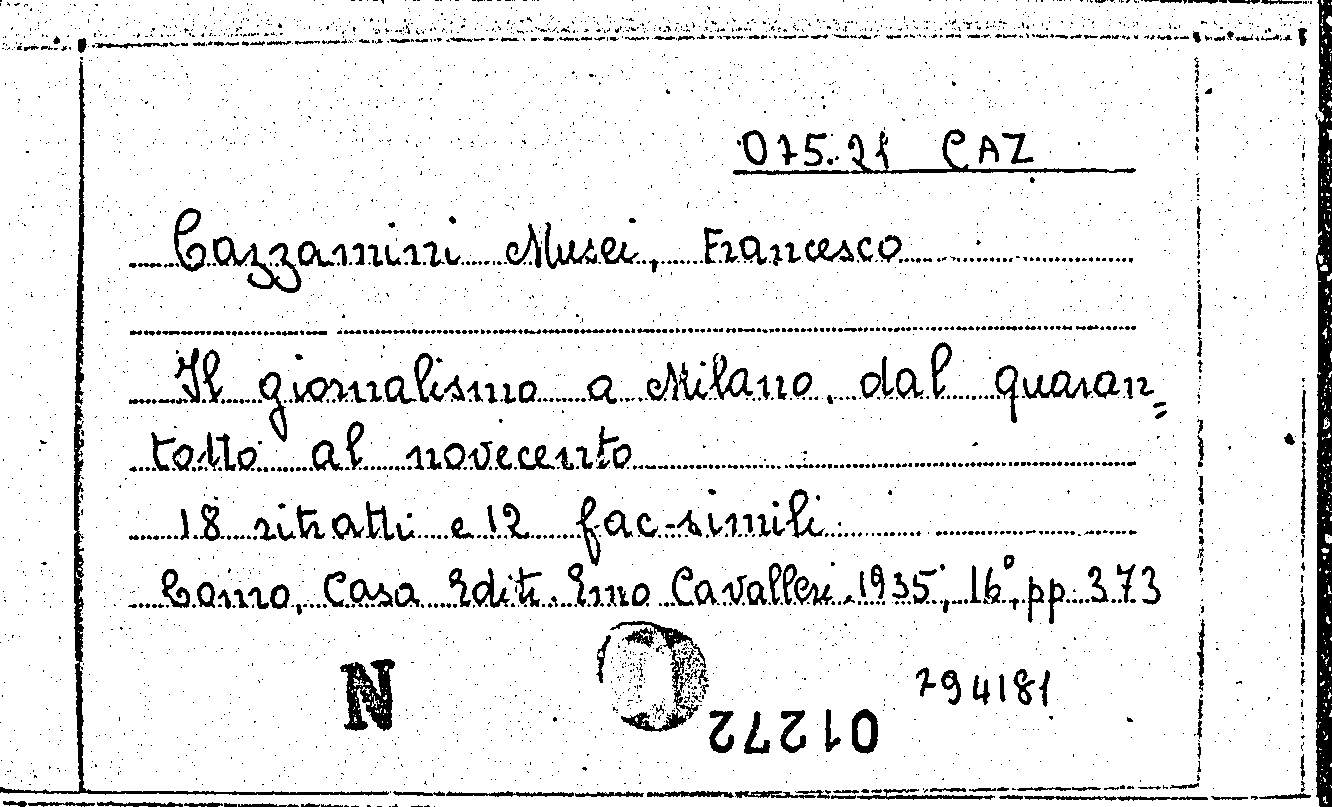 075.21 CAZ
Cazzamini Musei, Francesco
Il giornalismo a Milano, dal quaran=
totto al novecento
18 ritratti e 12 fac-simili
Como, Casa Edit. Emo Cavalleri, 1935, 16°, pp. 373
N
794181
01272